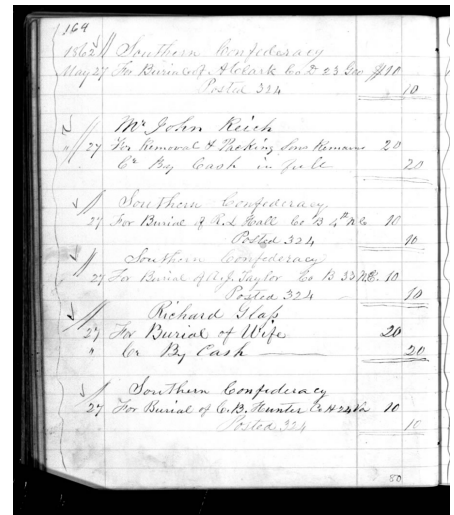 164
1862 // Southern Confederacy
May 27 For Burial of A Clark Co D 23 Geo $10
Posted 324 10
Mr John Reich
" // 27 For Removal & Packing Sons Remains 20
Cr By Cash in full 20
// Southern Confederacy
27 For Burial of R.L Hall Co B 4th N.C. 10
Posted 324 10
// Southern Confederacy
27 For Burial of A.J. Taylor Co B 33 N.C. 10
Posted 324 10
// Richard Glaſs
27 For Burial of Wife 20
" Cr By Cash 20
// Southern Confederacy
27 For Burial of C.B. Hunter Co H 24 Va 10
Posted 324 10
80